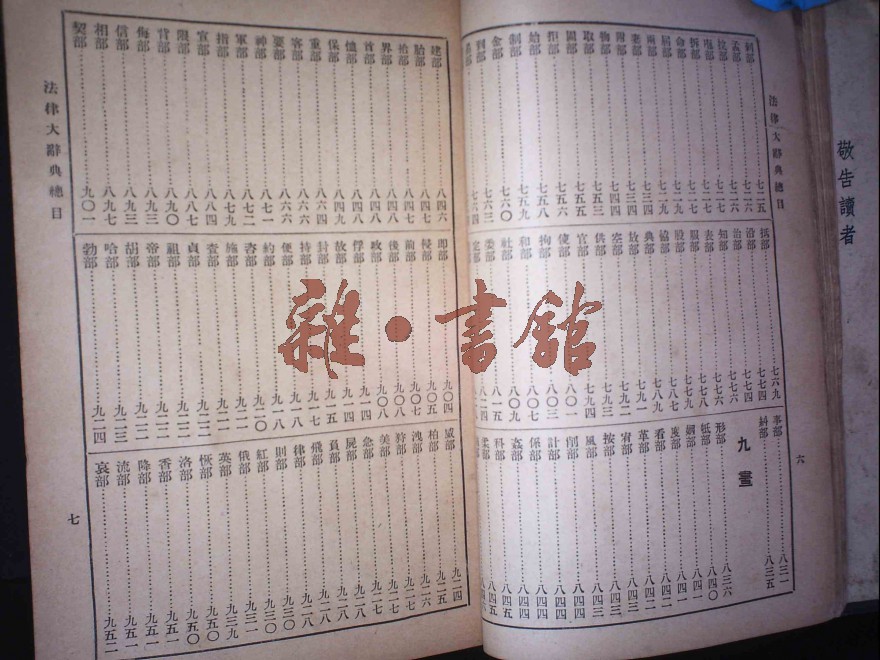 敬告讀者
法律大辭典總目
六
刺部 七一五
孟部 七一六
抗部 七一六
拆部 七一七
命部 七一七
屆部 七一九
兩部 七二四
老部 七三四
附部 七四四
物部 七五三
取部 七五五
固部 七五六
拒部 七五八
始部 七五九
制部 七六〇
金部 七六三
刑部 七六四
抵部 七六九
沿部 七七四
治部 七七六
知部 七七六
表部 七七八
服部 七八五
股部 七八七
協部 七八九
典部 七九一
放部 七九二
空部 七九三
供部 七九四
官部 七九四
使部 八〇一
拘部 八〇三
和部 八〇七
社部 八〇九
委部 八一五
定部 八二四
事部 八三一
糾部 八三五
九畫
形部 八三六
祇部 八四〇
炭部 八四一
看部 八四二
革部 八四三
宥部 八四三
按部 八四四
風部 八四四
削部 八四四
計部 八四四
係部 八四四
姦部 八四五
科部 八四五
柔部 八四六
建部 八四六
胎部 八四七
拾部 八四七
界部 八四八
首部 八四八
恤部 八四九
保部 八四九
重部 八六四
客部 八六六
要部 八六六
神部 八七一
軍部 八七二
指部 八七九
宣部 八八四
限部 八八七
背部 八九〇
侮部 八九三
信部 八九三
相部 八九七
契部 九〇一
即部 九〇四
侵部 九〇五
前部 九〇七
後部 九〇八
政部 九〇八
俘部 九一四
故部 九一四
封部 九一五
持部 九一七
便部 九一八
約部 九一八
咨部 九二〇
施部 九二一
查部 九二一
貞部 九二二
祖部 九二二
帝部 九二二
胡部 九二二
哈部 九二三
勃部 九二四
威部 九二四
柏部 九二五
洩部 九二六
狩部 九二七
美部 九二七
急部 九二七
屍部 九二八
頁部 九二八
飛部 九二八
律部 九二八
則部 九三〇
紅部 九三〇
俄部 九三一
英部 九三九
恢部 九五〇
洛部 九五〇
香部 九五一
降部 九五一
流部 九五一
哀部 九五二
法律大辭典總目
七
雜·書館